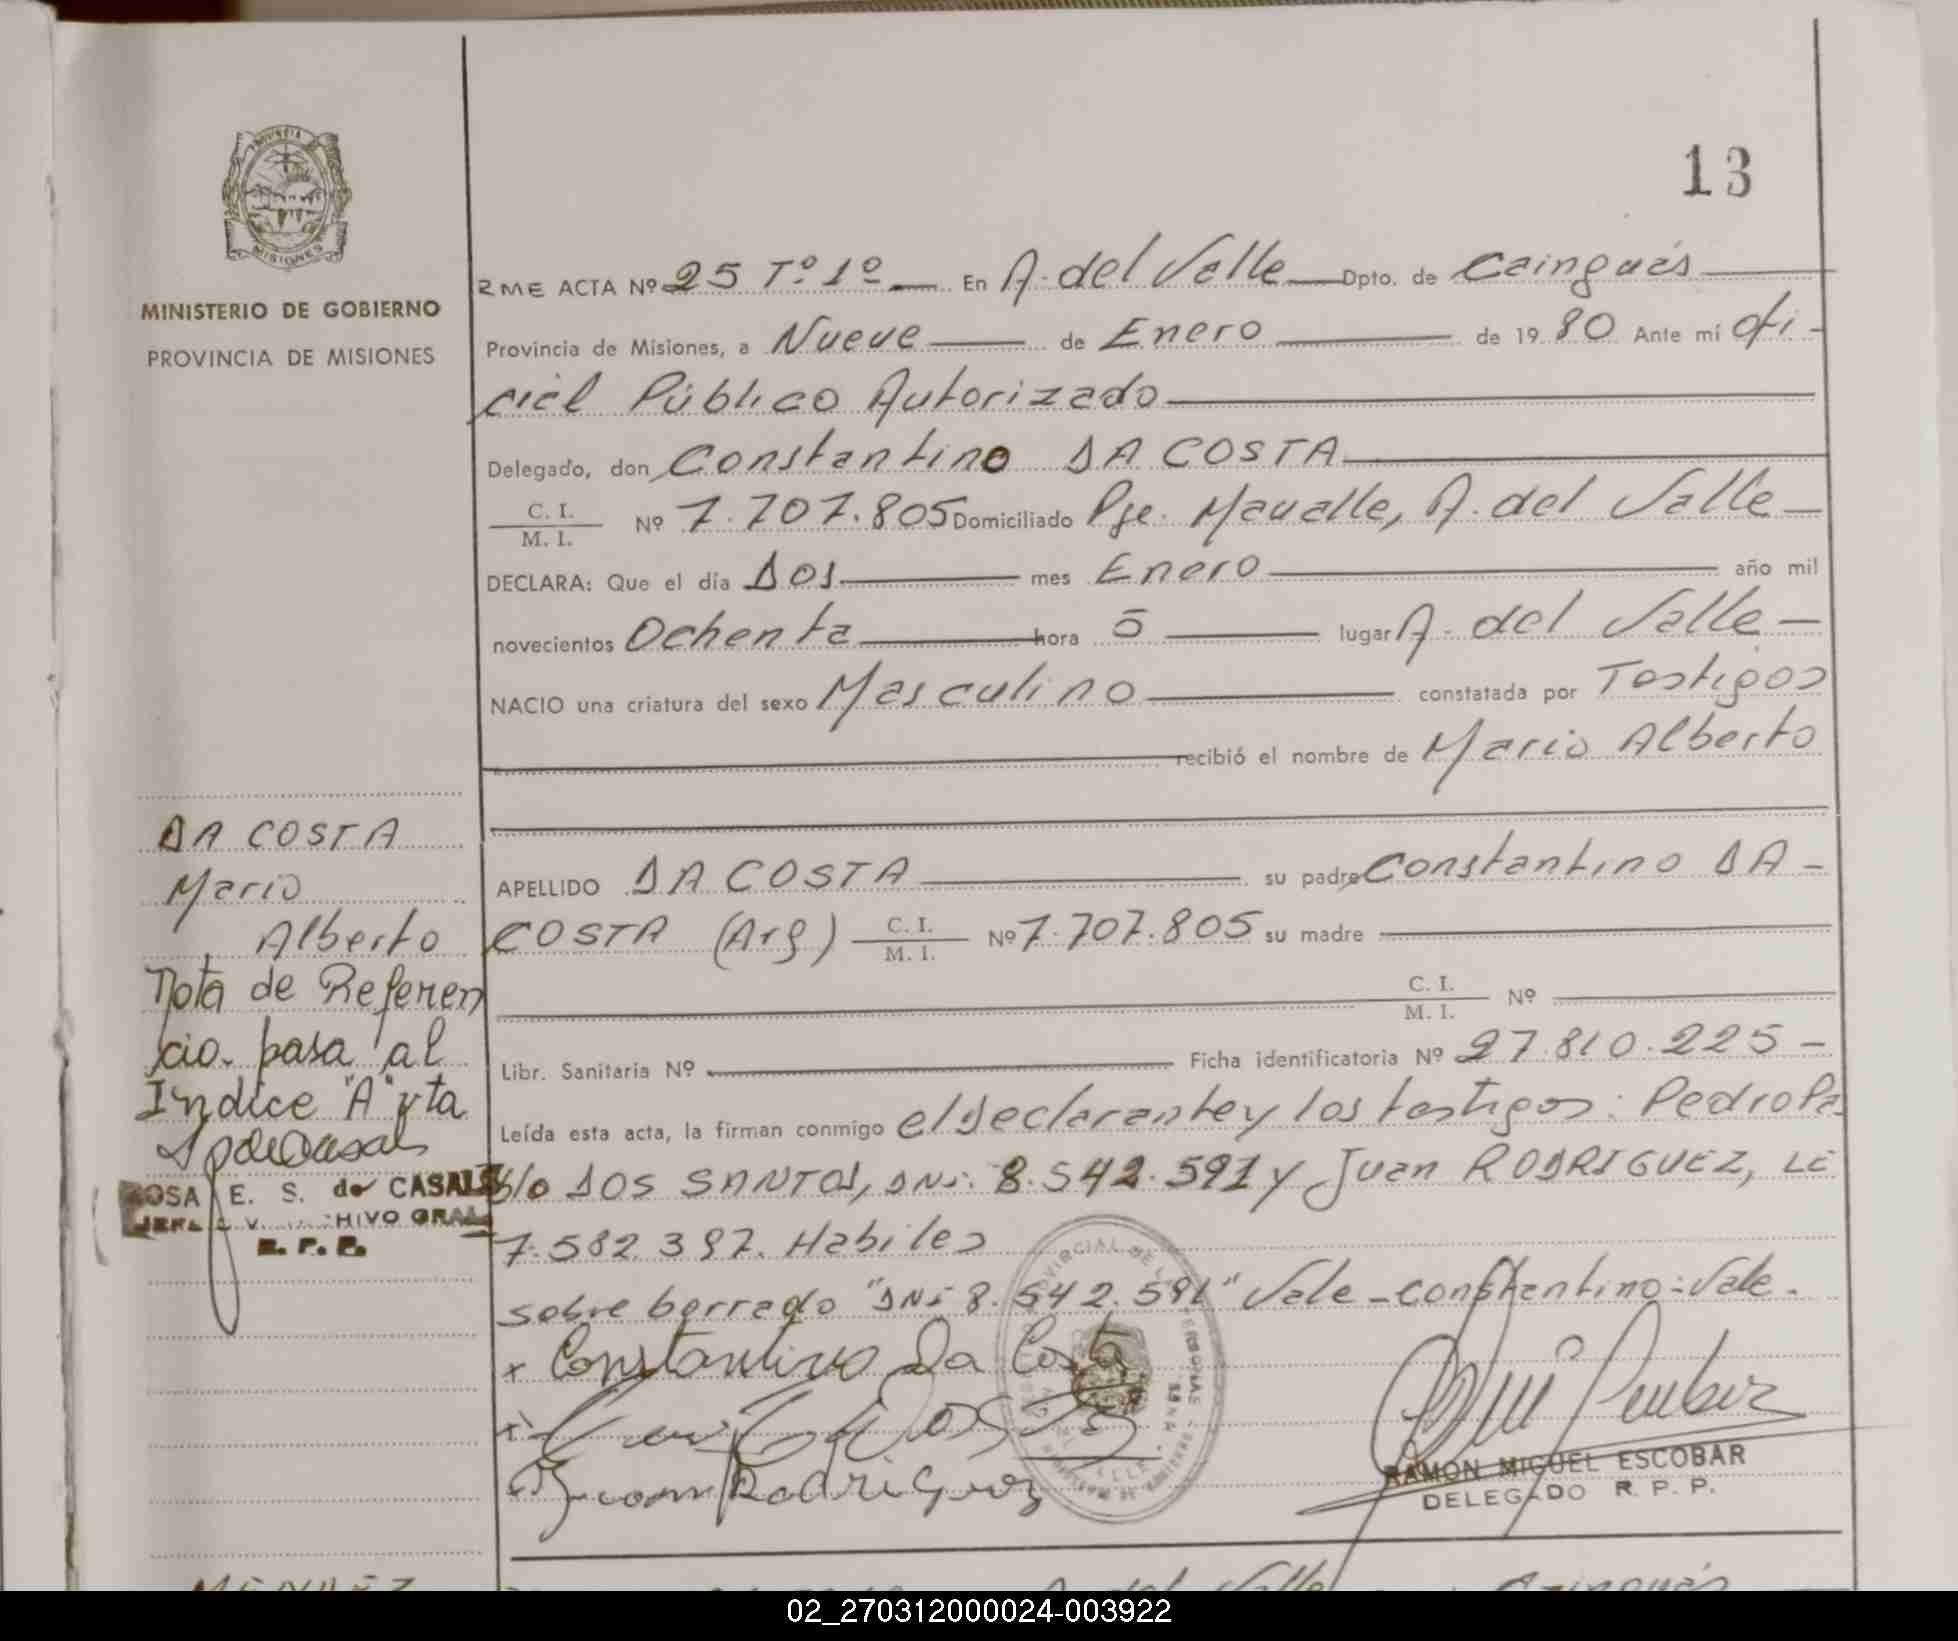 13
PROVINCIA
MISIONES
MINISTERIO DE GOBIERNO
PROVINCIA DE MISIONES
2ME ACTA Nº 25 Tº 1º En A. del Valle Dpto. de Cainguás
Provincia de Misiones, a Nueve de Enero de 19 80 Ante mí Ofi-
cial Público Autorizado
Delegado, don Constantino DA COSTA
C. I.
M. I. Nº 7.707.805 Domiciliado Pje. Mavalle, A. del Valle
DECLARA: Que el día Dos mes Enero año mil
novecientos Ochenta hora 5 lugar A. del Valle
NACIO una criatura del sexo Masculino constatada por Testigos
recibió el nombre de Mario Alberto
APELLIDO DA COSTA su padre Constantino DA
COSTA (Arg) C. I. M. I. Nº 7.707.805 su madre
C. I. M. I. Nº
Libr. Sanitaria Nº Ficha identificatoria Nº 27.810.225
Leída esta acta, la firman conmigo el declarante y los testigos: Pedro Pa
blo DOS SANTOS, DNI: 8.542.591 y Juan RODRIGUEZ, LE
7.582.397. Habiles
sobre borrado "DNI 8.542.591" Vale - constantino: Vale.
x Constantino Da Costa
Juan Rodriguez
RAMON MIGUEL ESCOBAR
DELEGADO R. P. P.
DA COSTA
Mario
Alberto
Nota de Referen
cia. pasa al
Indice "A" vta
ROSA E. S. de CASALS
R. P. P.
A. del Valle
02_270312000024-003922